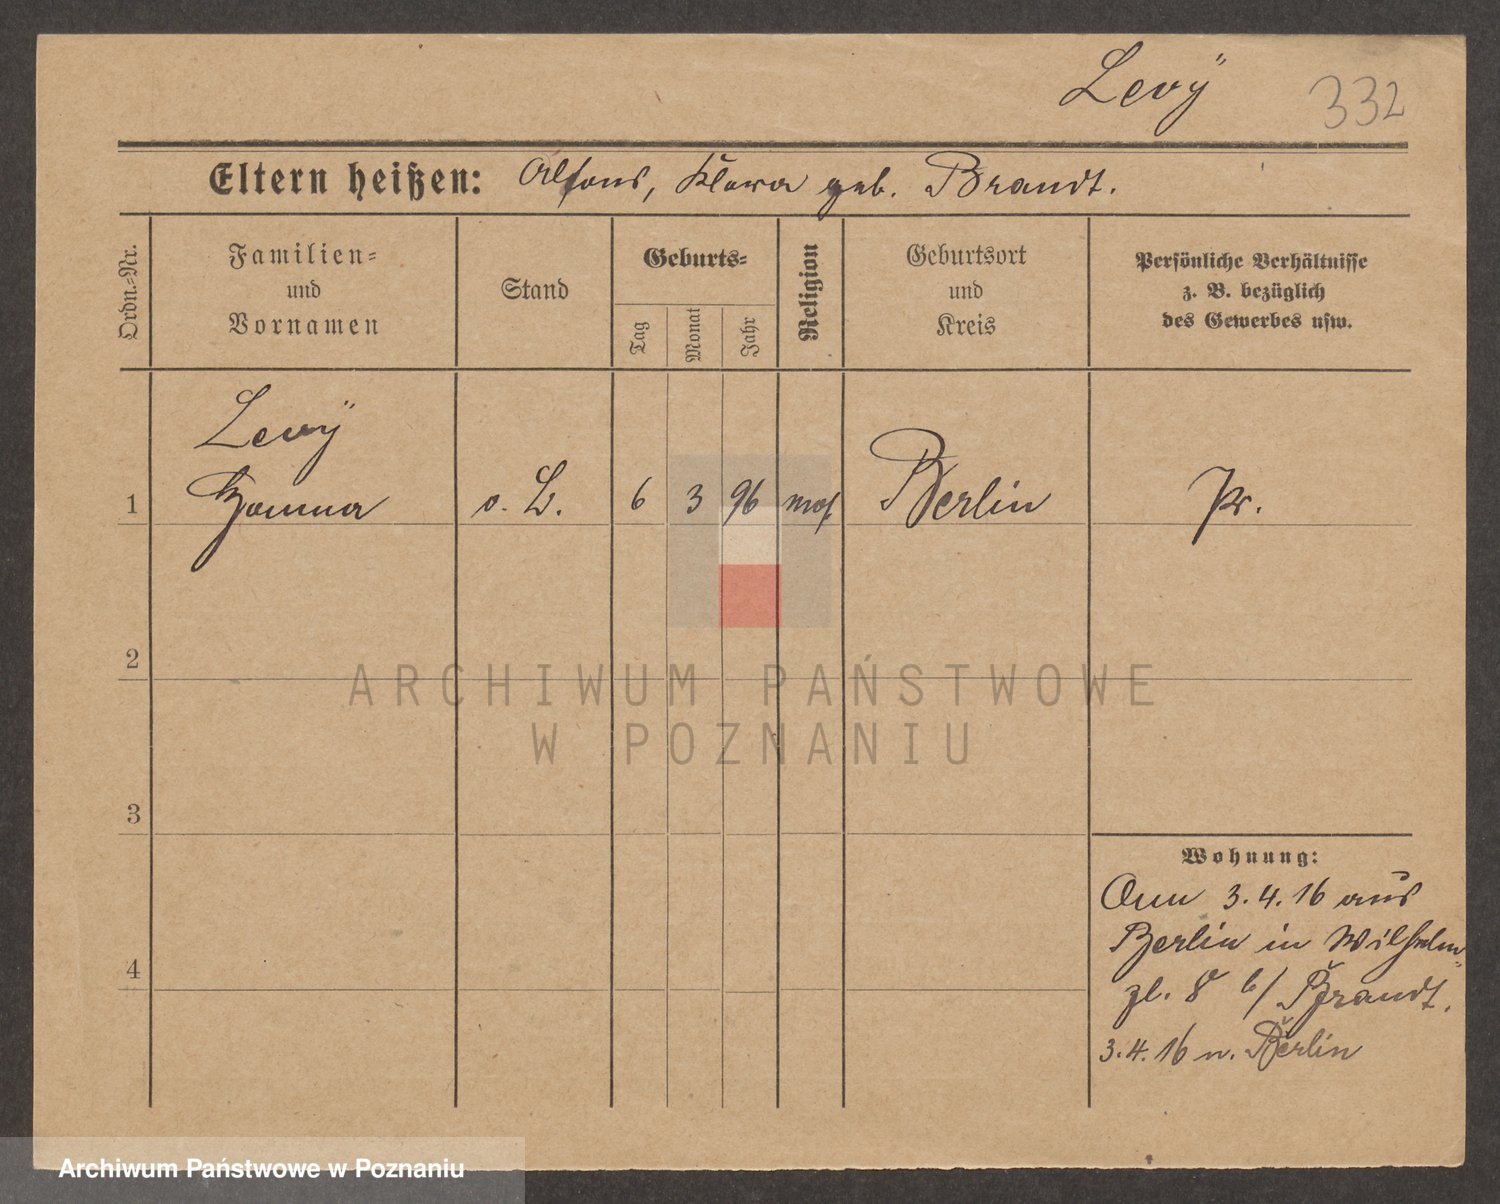 Levÿ 332
Eltern heißen: Alfons, Klara geb. Brandt.
Ordn.-Nr.
Familien=
und
Vornamen
Stand
Geburts=
Tag
Monat
Jahr
Religion
Geburtsort
und
Kreis
Persönliche Verhältnisse
z. B. bezüglich
des Gewerbes usw.
Levÿ
1 o. 6 3 96 mos Berlin Pr.
2
3
4
Wohnung:
3.4.16 aus
Berlin in Wilhelm
pl. 8 b/ Brandt.
3.4.16 n. Berlin
ARCHIWUM PAŃSTWOWE
W POZNANIU
Archiwum Państwowe w Poznaniu